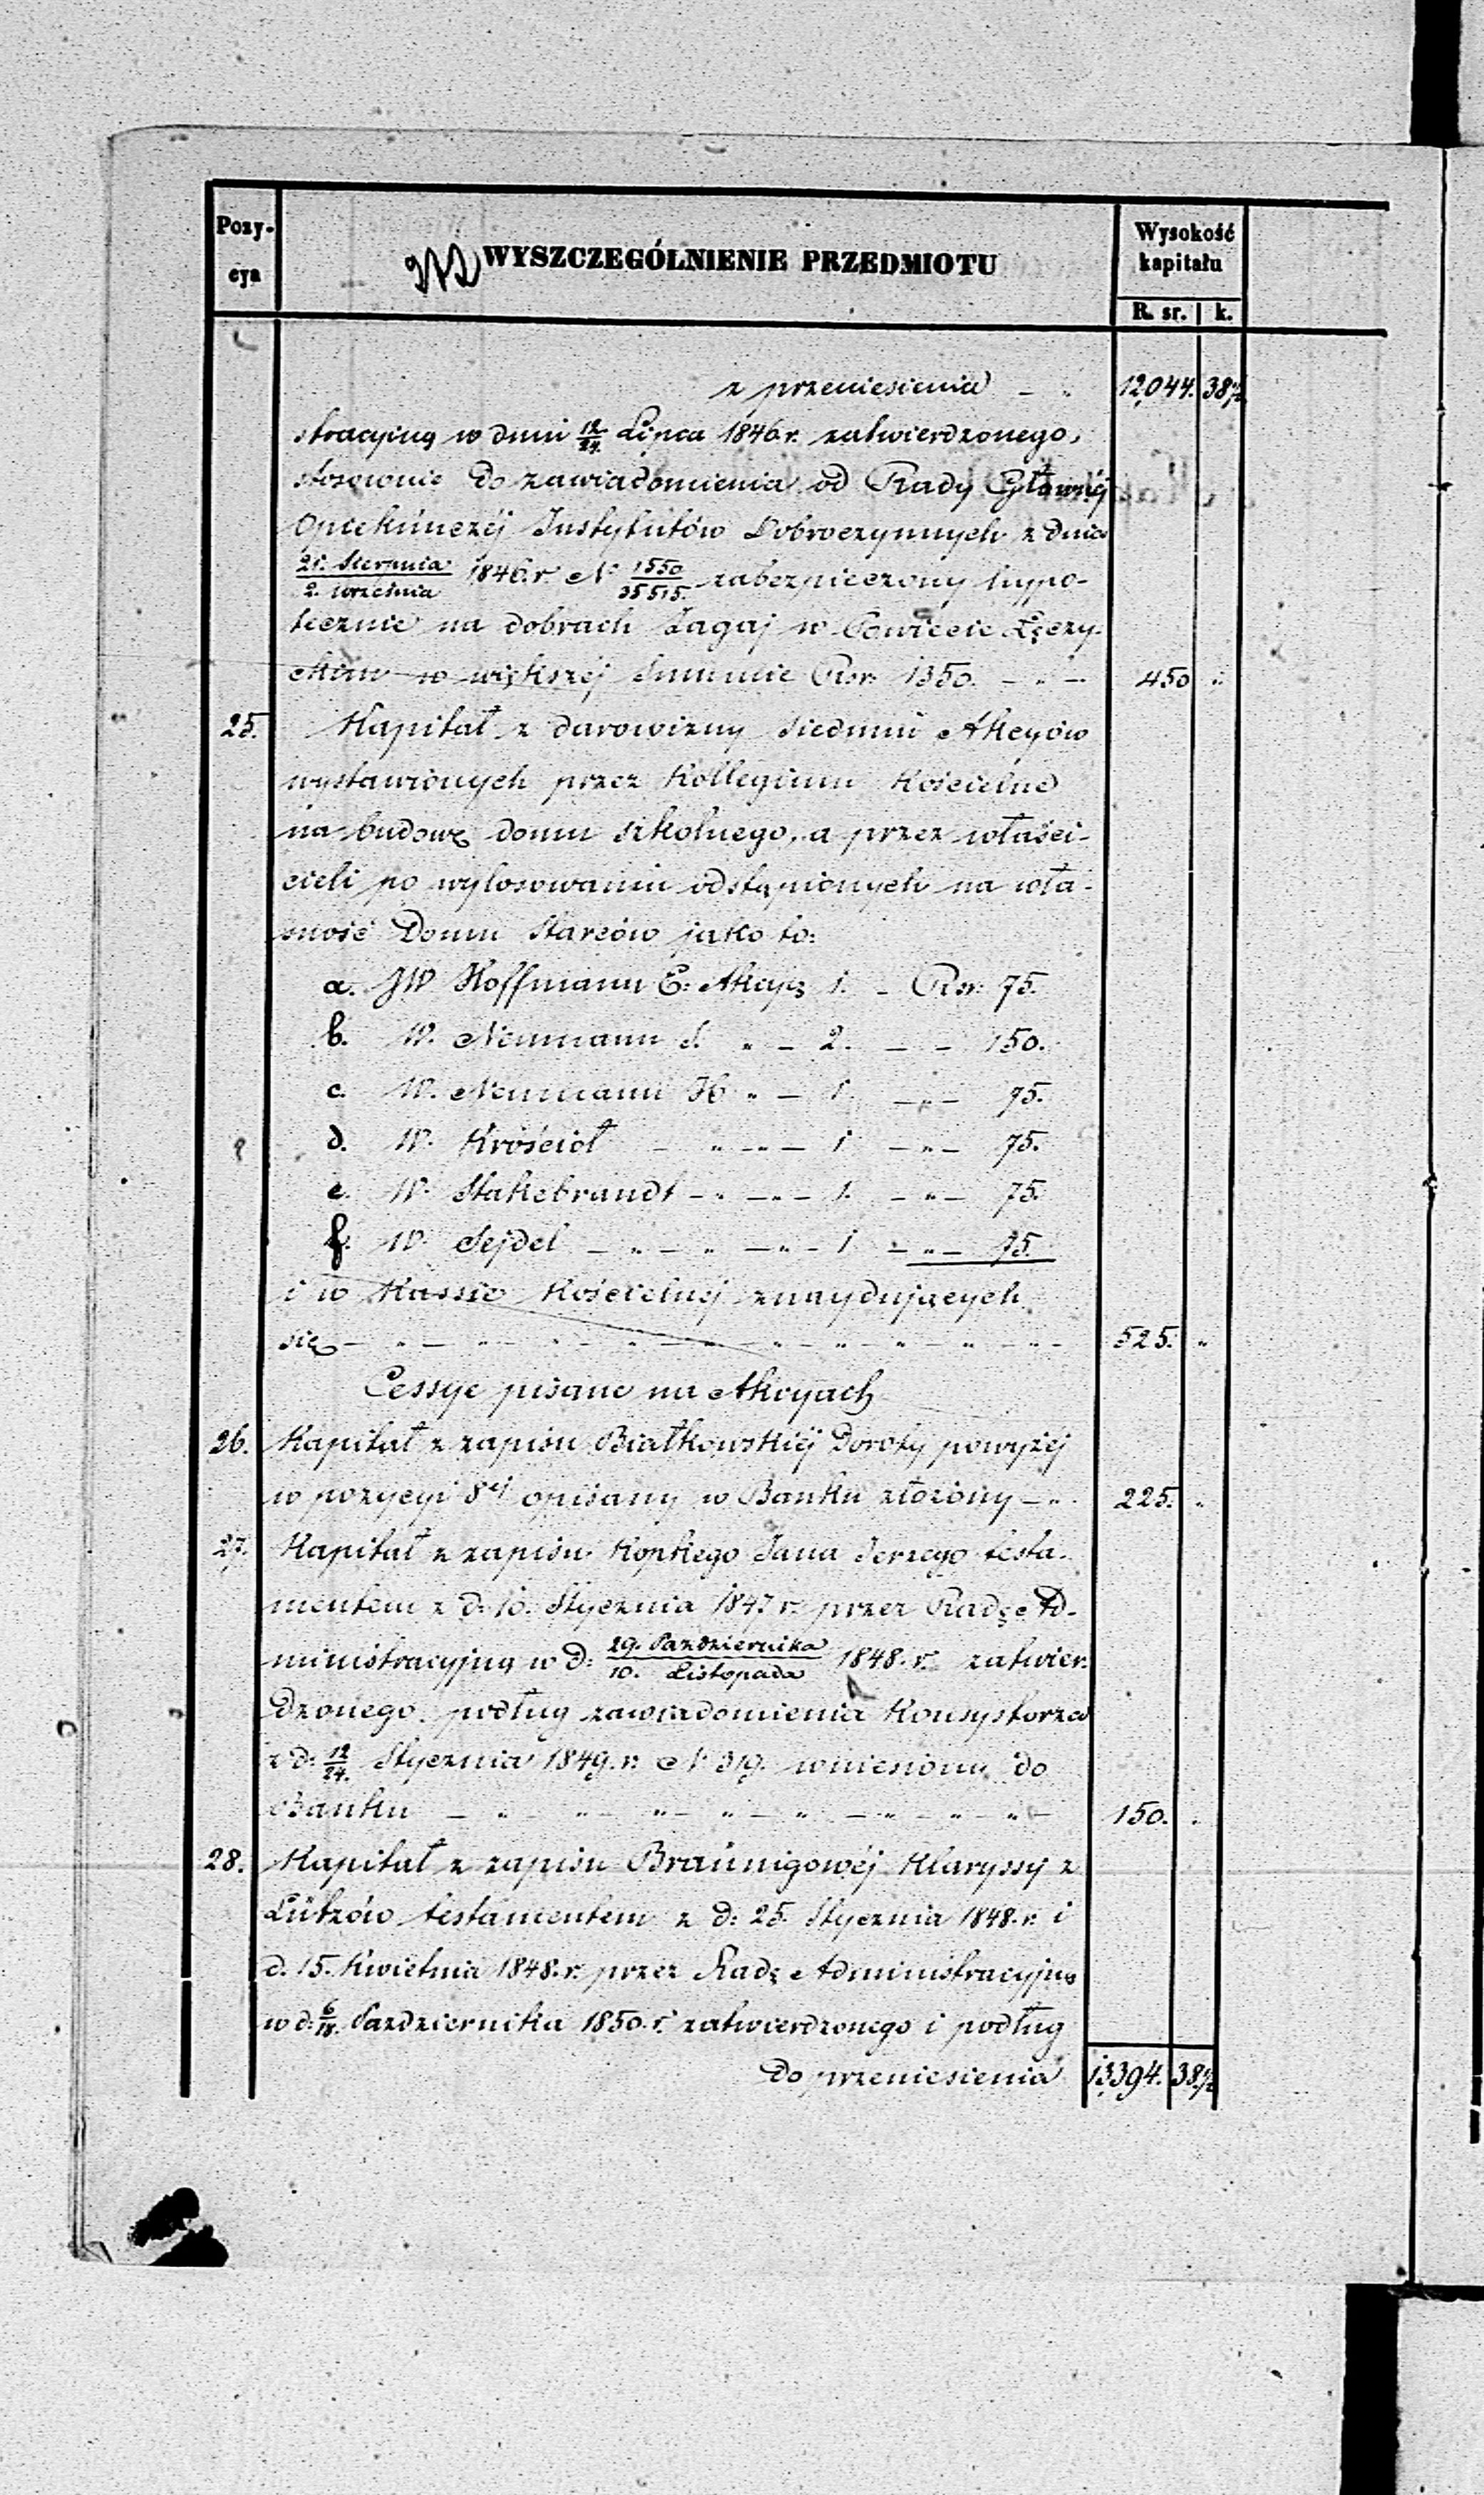 Pozycya
WYSZCZEGÓLNIENIE PRZEDMIOTU
Wysokość kapitału
R. sr. k.
z przeniesienia — „ 12,044. 38½
stracyjną w dniu 12/24 Lipca 1846 r. zatwierdzonego,
stosownie do zawiadomienia od Rady Głównéj
Opiekúnczéj Instytutów Dobroczynnych z dnia
21. Sierpnia/2. Września 1846. r. N° 1550/35515. zabezpieczony hypo-
tecznie na dobrach Zagaj w Powiecie Łęczy-
ckim w większéj Summie Rsr. 1350. — „ — 450 „
25. Kapitał z darowizny siedmiu Akcyów
wystawionych przez Kollegium Kościelne
na budowę domu szkolnego, a przez właści-
cieli po wylosowaniu odstąpionych na wła-
sność Domu Starców jako to:
a. JW Hoffmann E: Akcyę 1. — Rsr. 75.
b. W. Neumann S. „ — 2. — — 150.
c. W. Neumann H „ — 1. — „ — 75.
d. W. Krościoł — „ — „ — 1 — „ — 75.
e. W. Stakebrandt — „ — „ — 1. — „ — 75.
f. W. Sejdel — „ — „ — „ — 1 — „ — 75.
i w Kassie Kościelnej znaydujących
się — „ — „ — „ — „ — „ — „ — „ — „ — 525. „
Cessye pisane na Akcyach
26. Kapitał z zapisu Białkowskiéj Doroty powyżéj
w pozycyi 8éj opisany w Banku złożony — „ 225. „
27. Kapitał z zapisu Kopkego Jana Jerzego testa-
mentem z d. 10. Stycznia 1847 r. przez Radę Ad-
ministracyjną w d: 29. Października/10. Listopada 1848. r. zatwier-
dzonego, podług zawiadomienia Konsystorza
z d: 12/24. Stycznia 1849. r. N° 319. wniesiony do
Banku — „ — „ — „ — „ — „ — „ — „ — 150. „
28. Kapitał z zapisu Braúnigowéj Klaryssy z
Lützów testamentem z d: 25. Stycznia 1848. r. i
d. 15. Kwietnia 1848. r. przez Radę Administracyjną
w d: 6/18. Października 1850. r. zatwierdzonego i podług
do przeniesienia 13,394. 38½